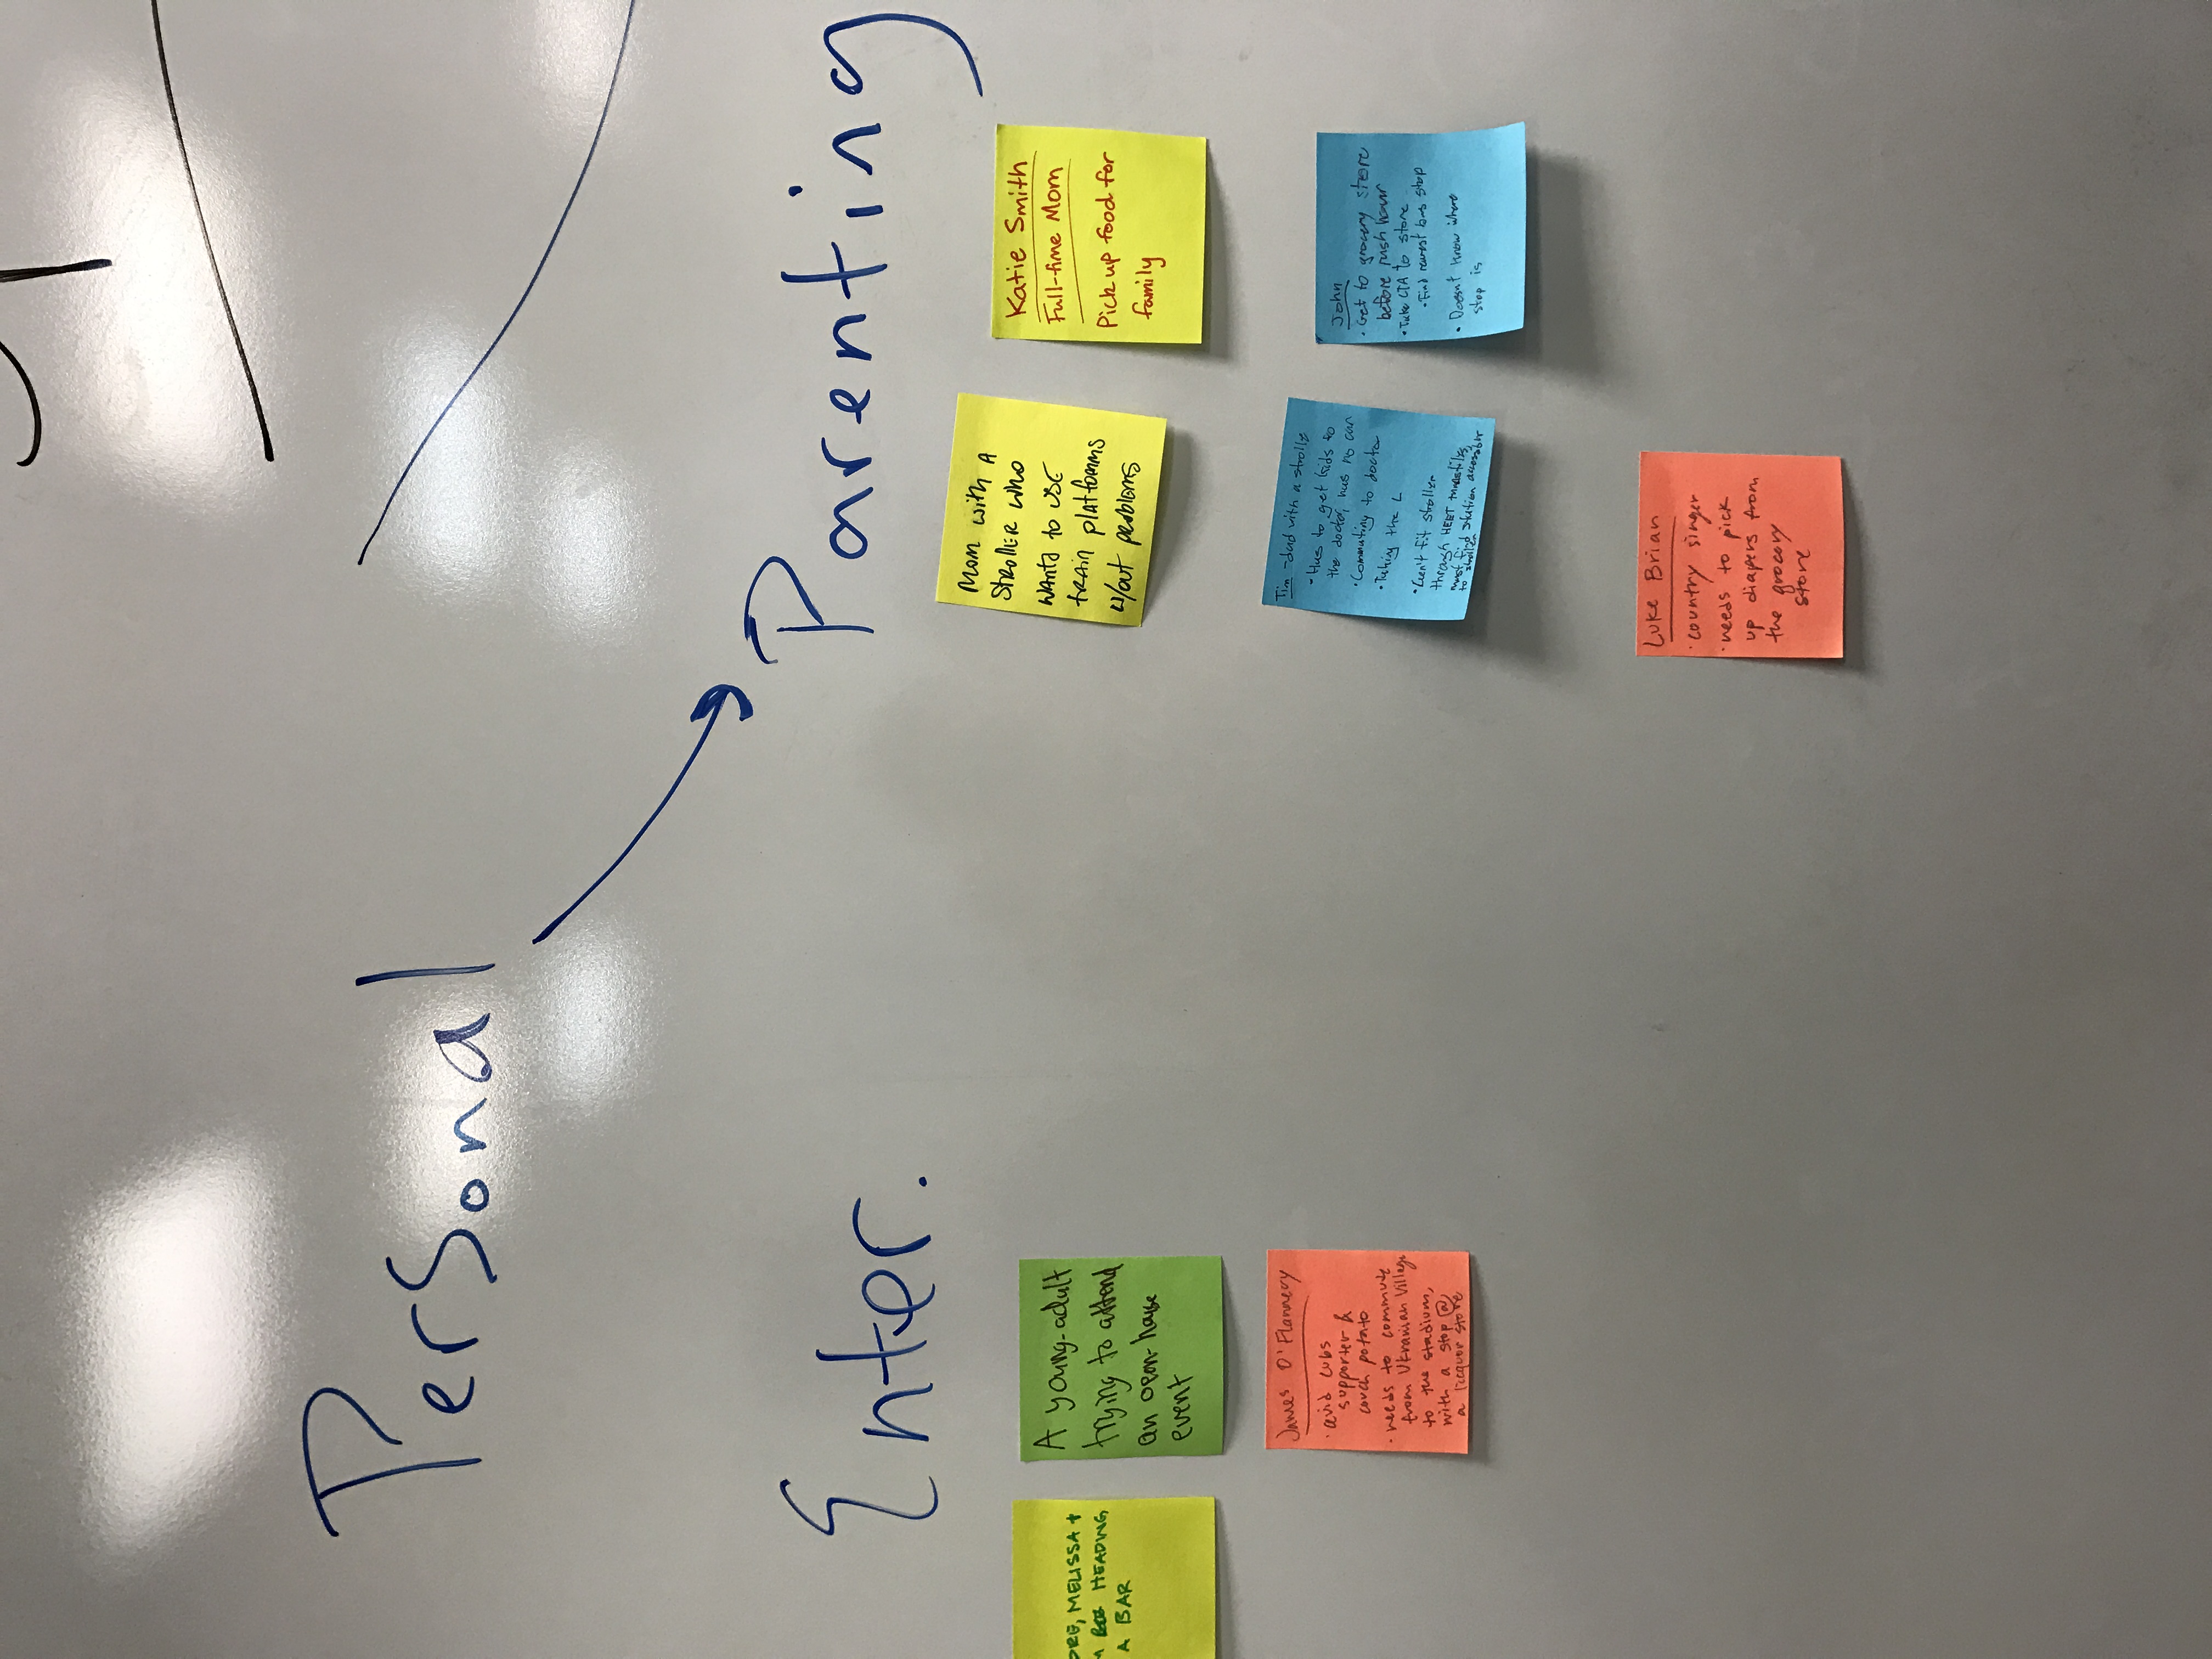 Personal
Enter.
Parenting
MELISSA +
HEADING
A BAR
A young-adult
trying to attend
an open-house
event
James O'Flannery
• avid cubs
supporter &
couch potato
• needs to commute
from Ukranian Village
to the stadium,
with a stop @
a licquor store
Mom with A
stroller who
wants to use
train platforms
w/out problems
Katie Smith
Full-time Mom
Pick up food for
family
Tim - dad with a strolle
• Has to get kids to
the doctor, has no car
• Commuting to doctor
• Taking the L
• Can't fit stroller
through HEET turnstiles,
must find station accessible
to stroller
John
• Get to grocery store
before rush hour
• Take CTA to store
• Find nearest bus stop
• Doesn't know where
stop is
Luke Brian
• country singer
• needs to pick
up diapers from
the grocery
store